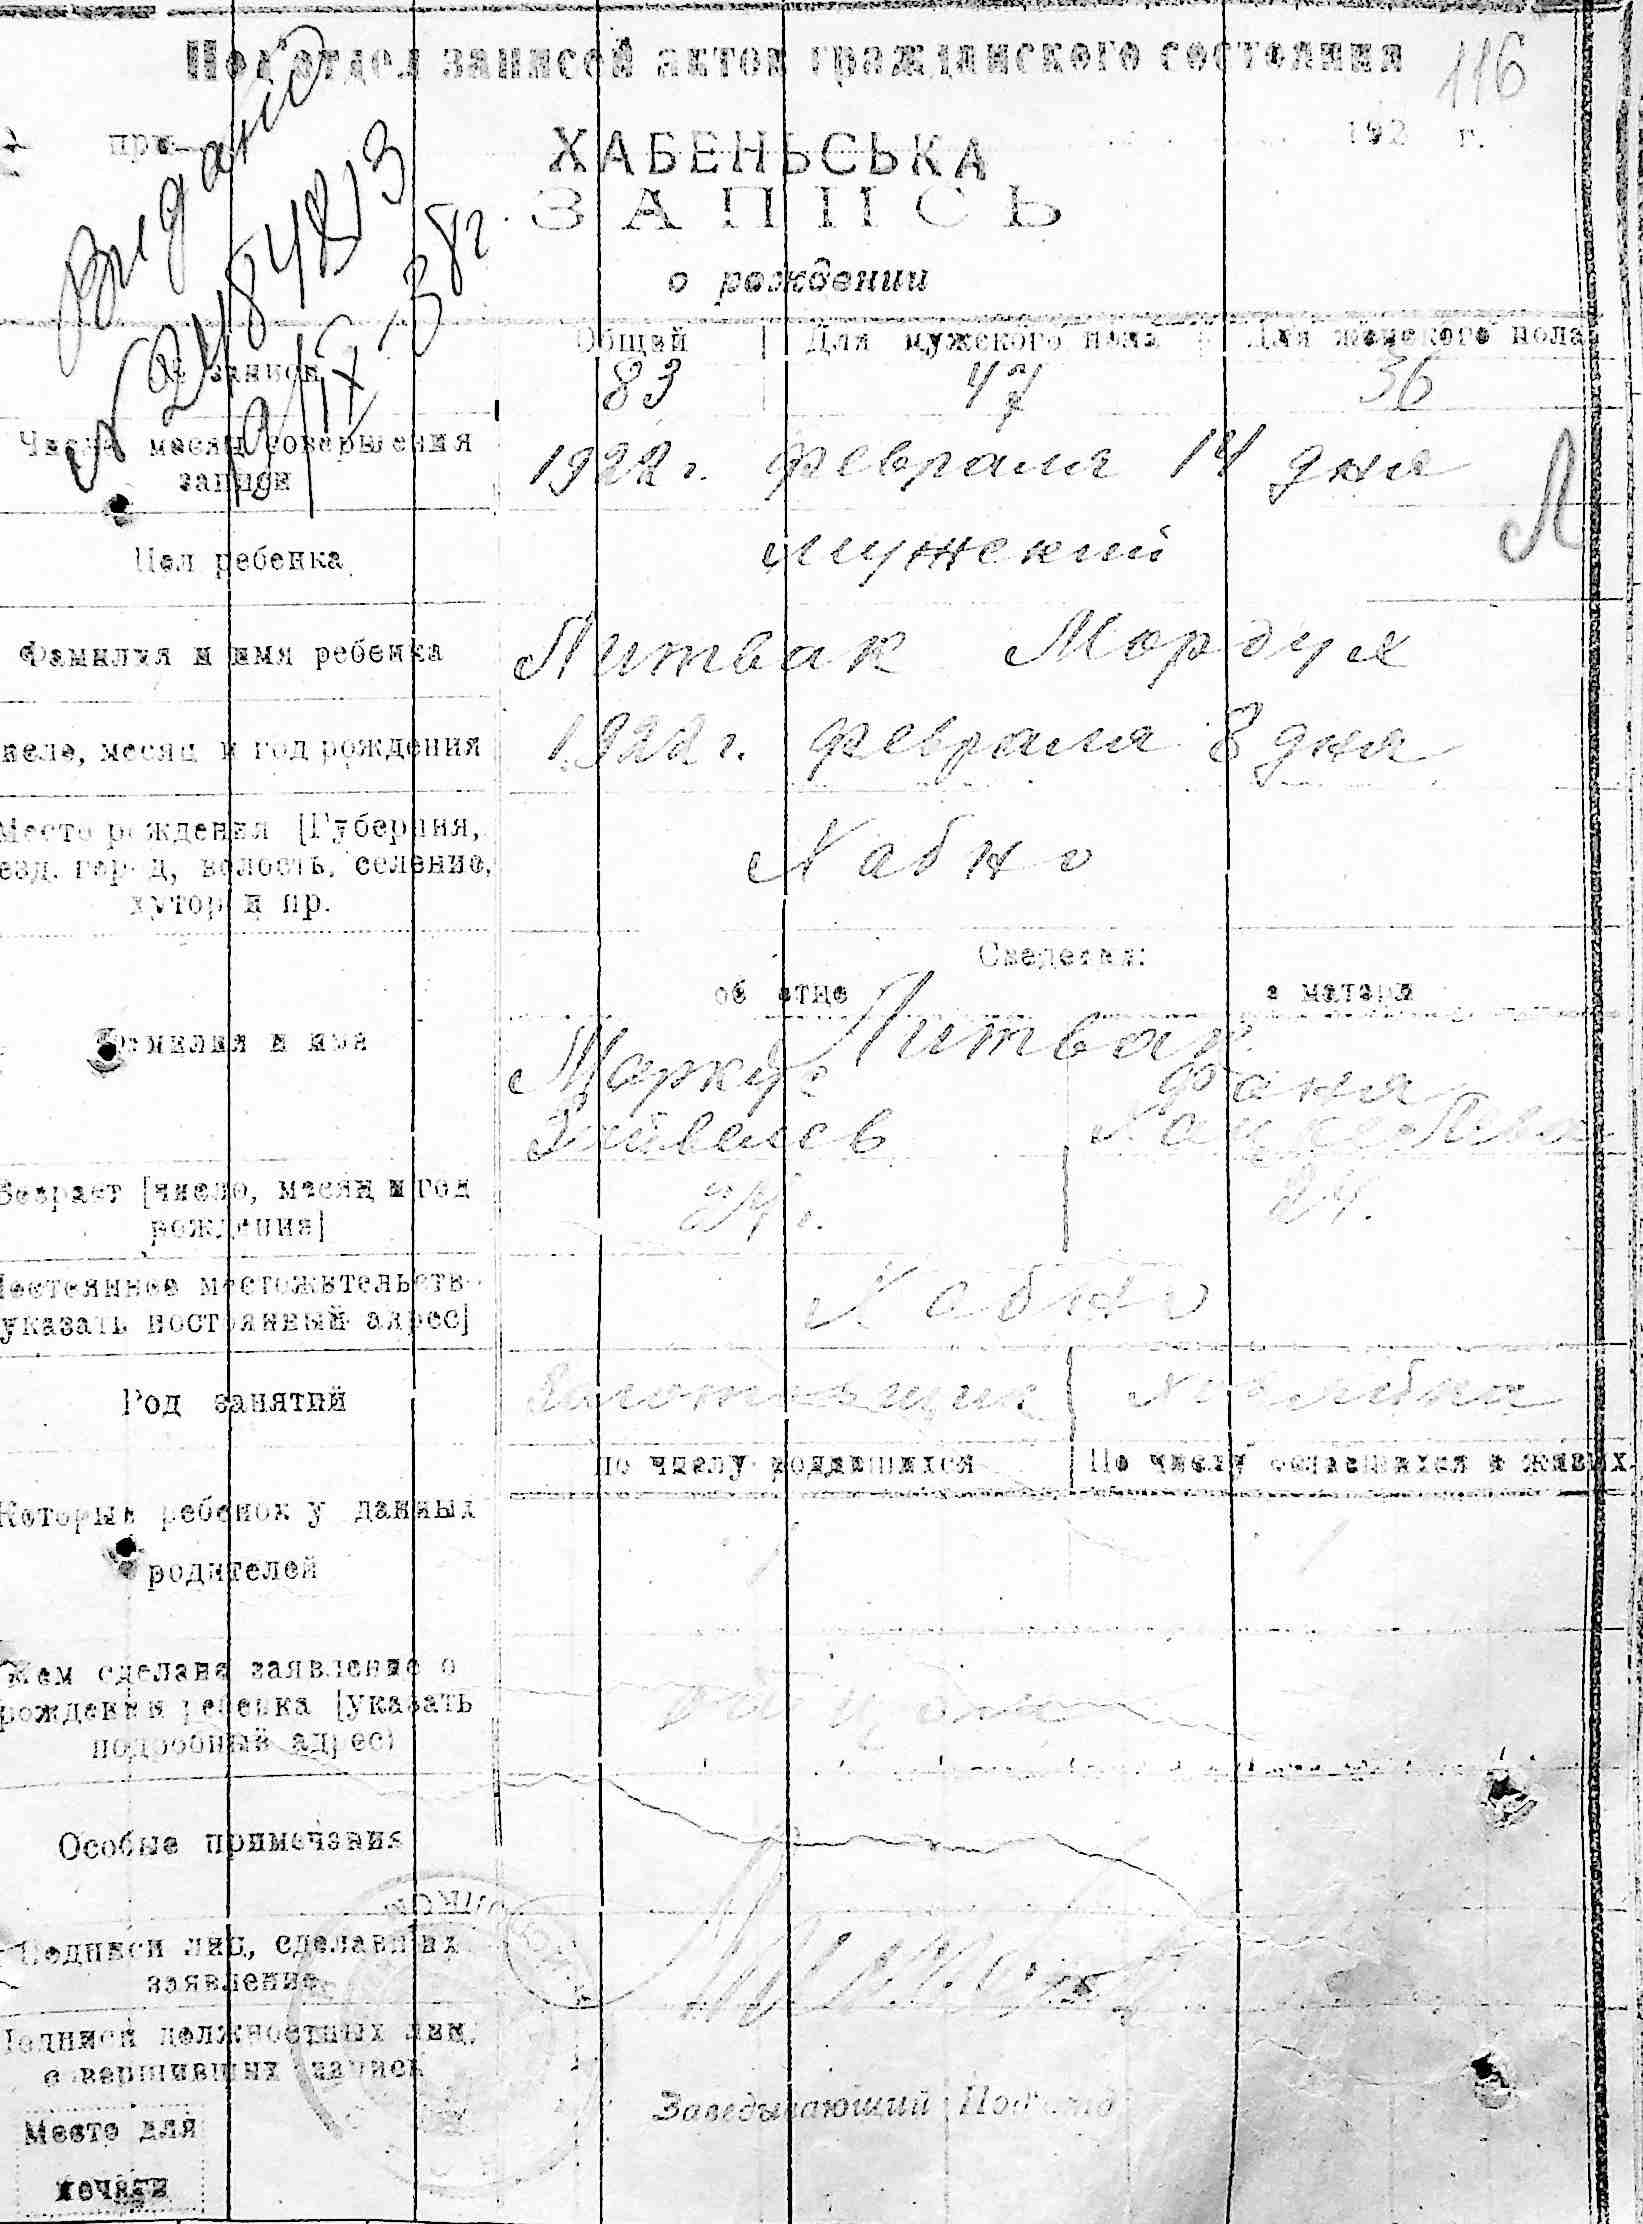 Под'отдел записей актов гражданского состояния
116
при
192 г.
ХАБЕНЬСЬКА
ЗАПИСЬ
о рождении
Видано
Общий | Для мужского пола | Для женского пола
№ записи 83 47 36
Число, месяц совершения
записи
1922 г. февраля 14 дня
Л
Пол ребенка мужский
Фамилия и имя ребенка Литвак Мордух
число, месяц и год рождения 1922 г. февраля 8 дня
Место рождения [Губерния,
уезд, город, волость, селение,
хутор и пр.
Хабно
Сведения:
об отце о матери
Фамилия и имя Литвак
Маркус Фаня
Зейвелев
Возраст [число, месяц и год
рождения]
24 г. 24.
Постоянное местожительств
указать постоянный адрес]
Хабно
Род занятий
по числу родившихся | По числу оставшихся в живых
Который ребенок у данных
родителей
1 1
Кем сделано заявление о
рождении ребенка [указать
подробный адрес)
Особые примечания
Подписи лиц, сделавших
заявление
Подписи должностных лиц,
совершивших запись
Заведывающий Под'отд
Место для
печати